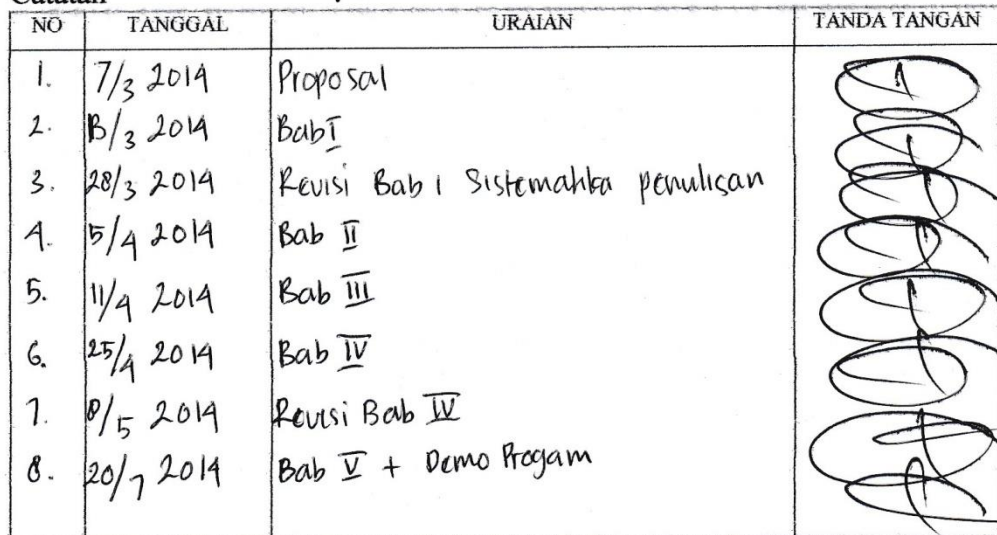 NO TANGGAL URAIAN TANDA TANGAN
1. 7/3 2014 Proposal
2. 13/3 2014 Bab I
3. 28/3 2014 Revisi Bab 1 Sistematika penulisan
4. 5/4 2014 Bab II
5. 11/4 2014 Bab III
6. 25/4 2014 Bab IV
7. 8/5 2014 Revisi Bab IV
8. 20/7 2014 Bab V + Demo Progam